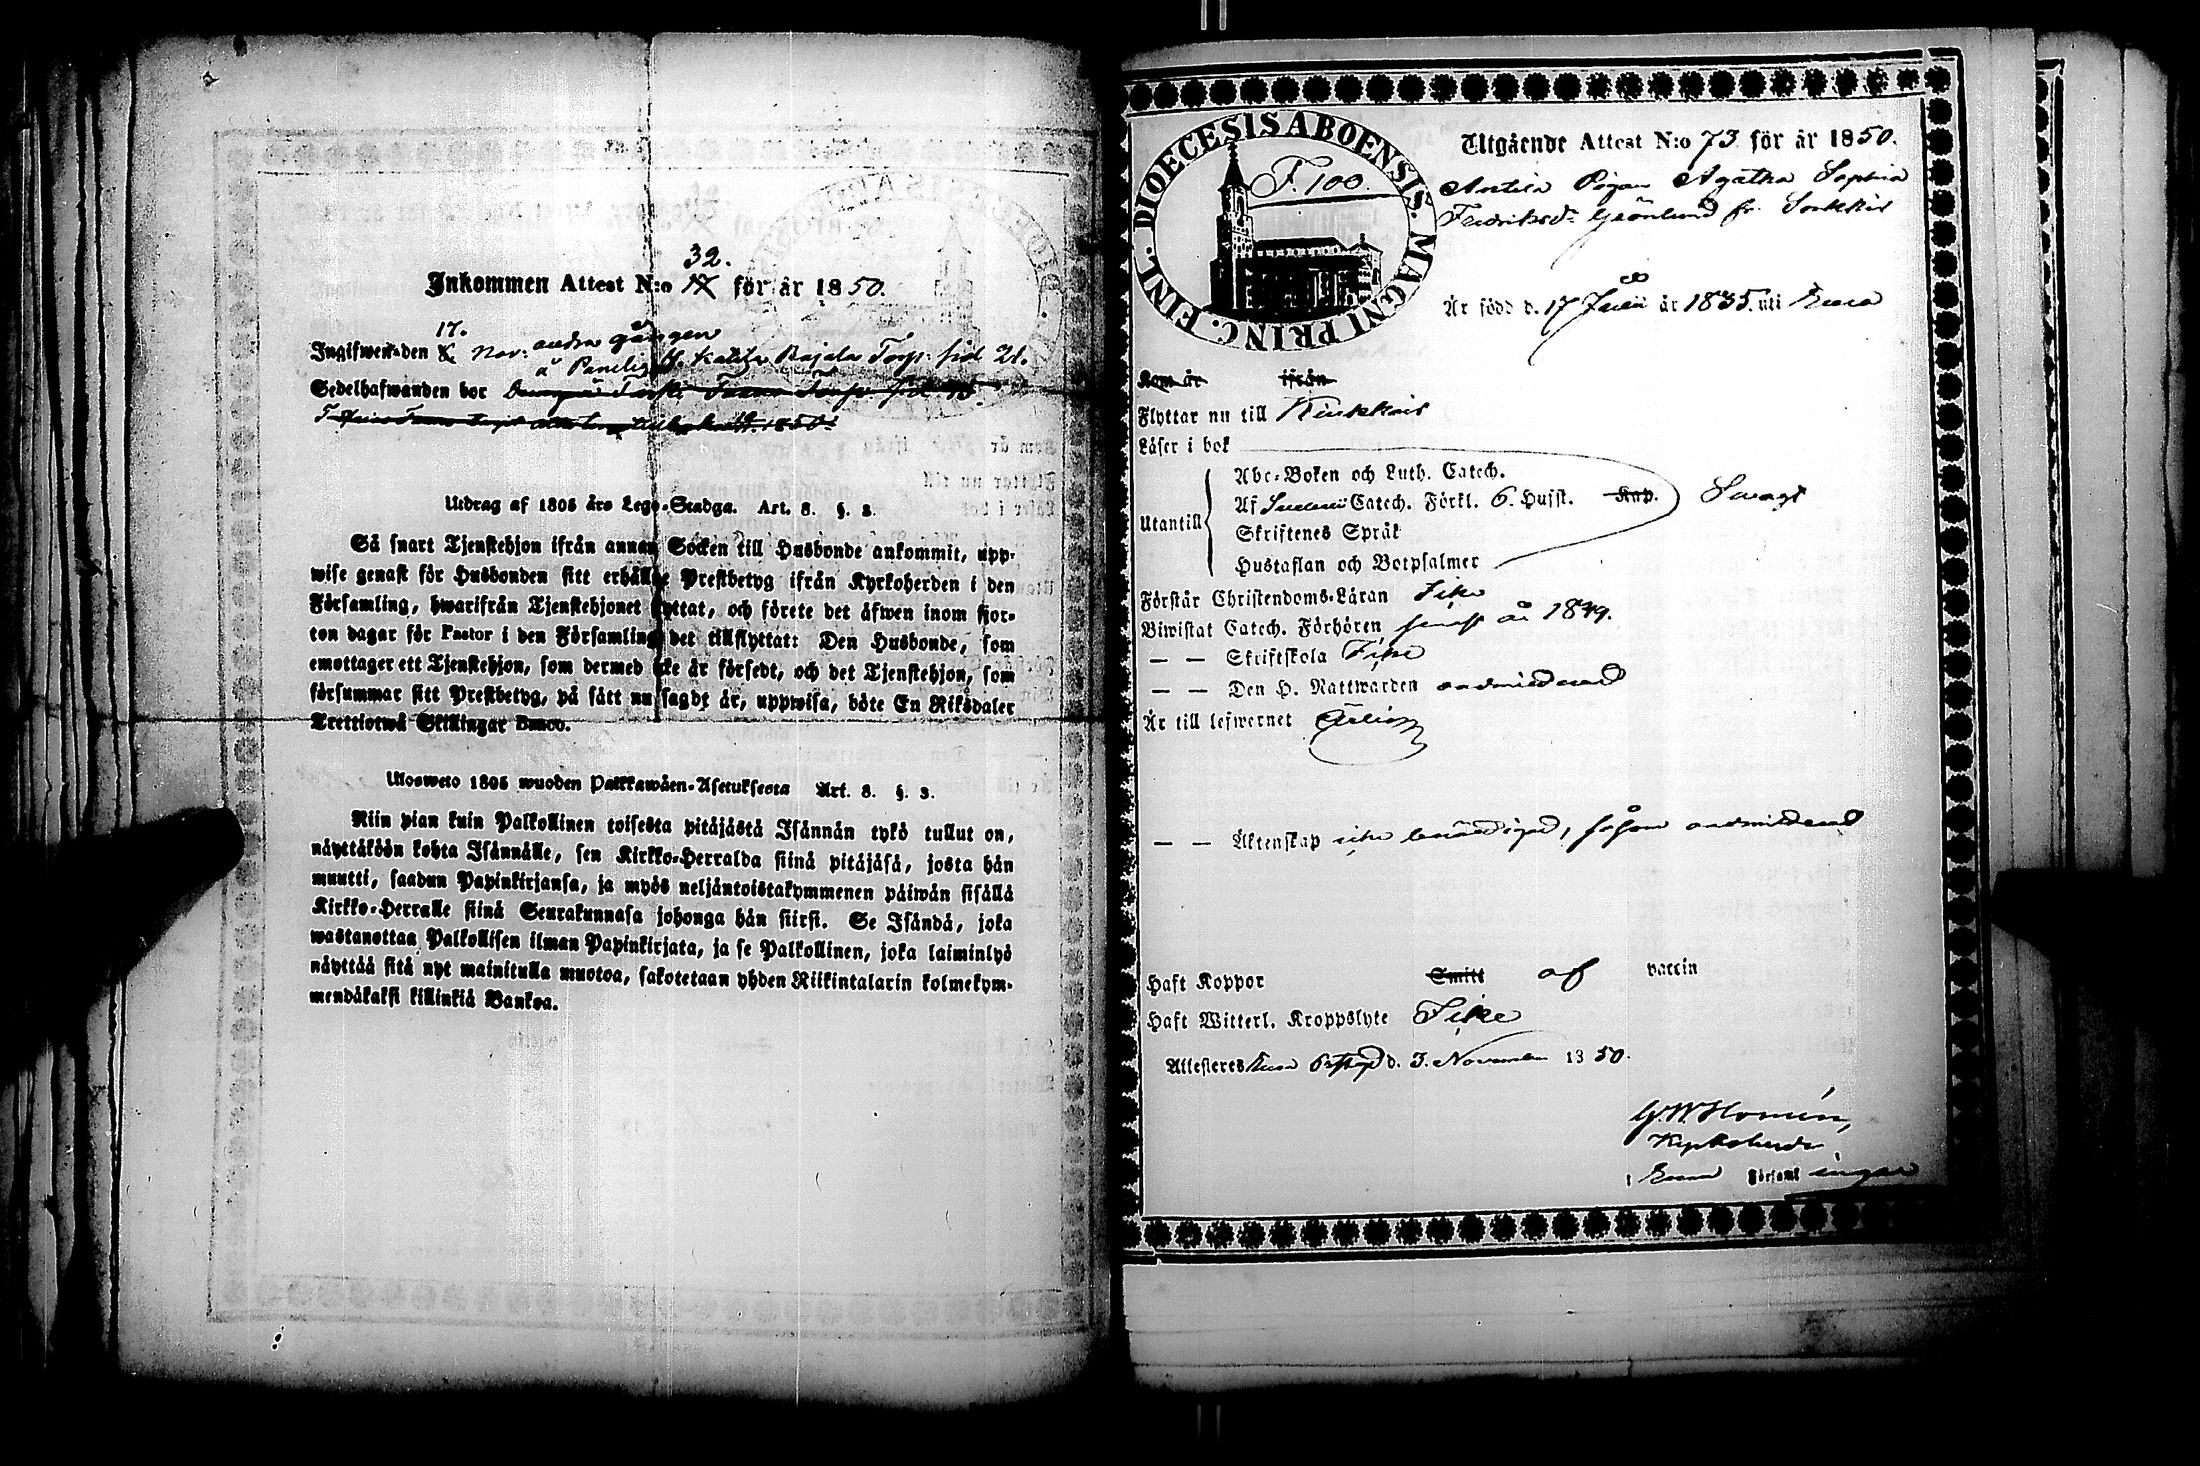 32.
Inkommen Attest N:o 17 för år 1850.
17.
andra gången
Ingifwen den X Nov:
å Panelia Rajala Torp: sid 21.
Sedelhafwanden bor
Utdrag af 1805 års Lego-Stadga. Art. 8. §. 3.
Så snart Tjenstehjon ifrån annan Socken till Husbonde ankommit, upp-
wise genast för Husbonden sitt erhållne Prestbetyg ifrån Kyrkoherden i den
Församling, hwarifrån Tjenstehjonet flyttat, och förete det äfwen inom fjor-
ton dagar för Pastor i den Församling det tillflyttat: Den Husbonde, som
emottager ett Tjenstehjon, som dermed icke är försedt, och det Tjenstehjon, som
försummar sitt Prestbetyg, på sätt nu sagdt är, uppwisa, böte En Riksdaler
Trettiotwå Skillingar Banco.
Ulosweto 1805 wuoden Palkkawäen-Asetuksesta Art. 8. §. 3.
Niin pian kuin Palkollinen toisesta pitäjästä Isännän tykö tullut on,
näyttäköön kohta Isännälle, sen Kirkko-Herralda siinä pitäjäsä, josta hän
muutti, saadun Papinkirjansa, ja myös neljäntoistakymmenen päiwän sisällä
Kirkko-Herralle siinä Seurakunnasa johonga hän siirsi. Se Isändä, joka
wastanottaa Palkollisen ilman Papinkirjata, ja se Palkollinen, joka laiminlyö
näyttää sitä nyt mainitulla muotoa, sakotetaan yhden Riikintalarin kolmekym-
mendäkaksi killinkiä Bankoa.
DIOECESIS ABOENSIS. MAGNI PRINC. FINL.
F. 100.
Utgående Attest N:o 73 för år 1850.
Pigan Agatha Sophia
Fredriksdr Grönlund fr. Sorkkis
Är född d. 17 Juli år 1835. uti Eura
Kom år ifrån
Flyttar nu till Kiukkais
Läser i bok
Utantill
Abc-Boken och Luth. Catech.
Af Catech. Förkl. 6. Hufst. Kap.
Swagt
Skriftenes Språk
Hustaflan och Botpsalmer
Förstår Christendoms-Läran Like
Biwistat Catech. Förhören senast år 1849.
— — Skriftskola Icke
— — Den H. Nattwarden oadmitterad
Är till lefwernet Ärlig
— — Äktenskap icke berättigad, såsom oadmitterad
Haft Koppor Smitt af vaccin
Haft Witterl. Kroppslyte Icke
Attesteres Eura Prestgd d. 3. November 1850.
Kyrkoherde
i Eura Församlingar